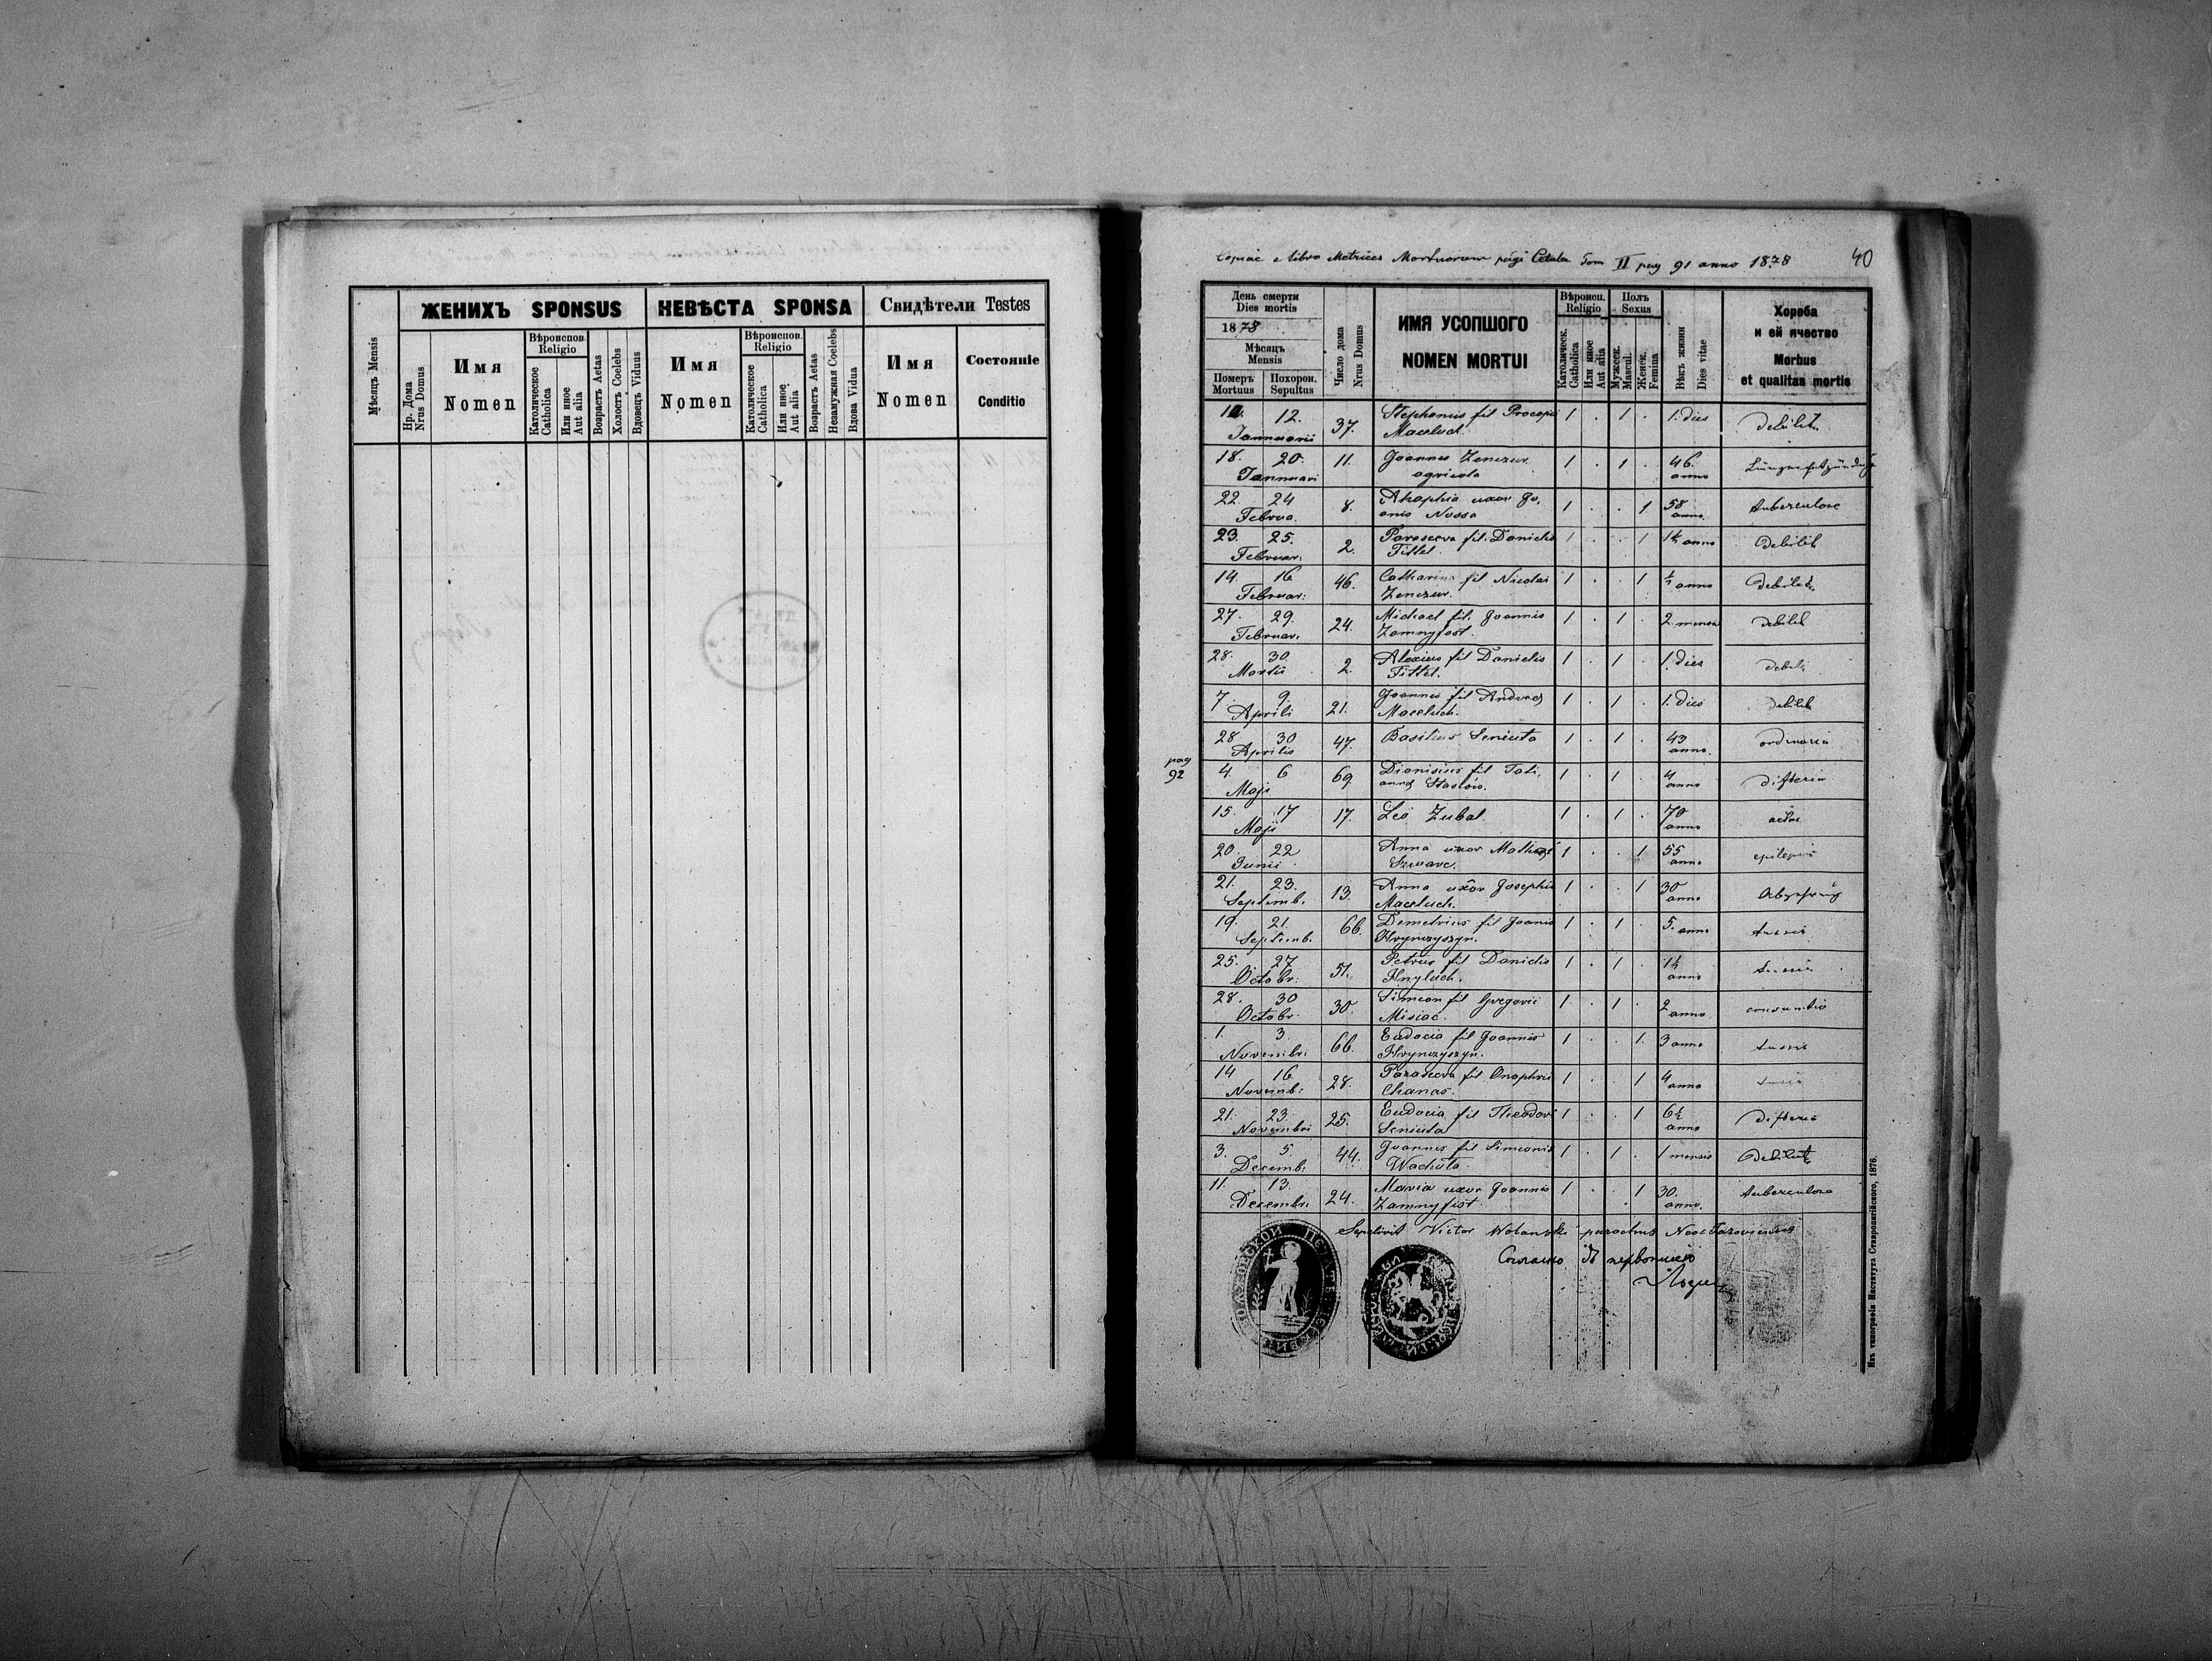 ЖЕНИХЪ SPONSUS
НЕВѢСТА SPONSA
Свидѣтели Testes
Мѣсяцъ Mensis
Нр. Дома
Nrus Domus
Имя
Nomen
Вѣроиспов.
Religio
Католическое
Catholica
Или иное
Aut alia
Возрастъ Aetas
Холостъ Coelebs
Вдовецъ Viduus
Имя
Nomen
Вѣроиспов.
Religio
Католическое
Catholica
Или иное
Aut alia
Возрастъ Aetas
Незамужная Coelebs
Вдова Vidua
Имя
Nomen
Состояніе
Conditio
Copiae e libro Metrices Mortuorum pagi Cetula Tom II pag 91 anno 1878
40
День смерти
Dies mortis
1878
Мѣсяцъ
Mensis
Померъ
Mortuus
Похорон.
Sepultus
Число дома
Nrus Domus
ИМЯ УСОПШОГО
NOMEN MORTUI
Вѣроисп.
Religio
Католическ.
Catholica
Или иное
Aut alia
Полъ
Sexus
Мужеск.
Mascul.
Женск.
Femina
Вѣкъ жизни
Dies vitae
Хороба
и ей ячество
Morbus
et qualitas mortis
12. 37. Stephanus fil Procopii 1 . 1 . 1. dies Debilit
Januarii Maceluch.
18. 20. 11. Joannes Zenczur 1 . 1 . 46.
Januari agricola anno
22. 24 8. Ahaphia uxor Jo, 1 . . 1 58 tuberculose
Februa. anis Nossa anno
23. 25. 2. Parasceva fil. Danielis 1 . . 1 1½ anno Debilit
Februar. Tittel.
14. 16 46. Catharina fil Nicolai 1 . . 1 ½ anno Debilit
Februar: Zenczur.
27. 29. 24. Michael fil. Joannis 1 . 1 . 2. mensa debilit
Februar. Zamnyfost.
28. 30. 2. Alexius fil Danielis 1 . 1 . 1. dies debili
Martii Tittel.
7. 9. 21. Joannes fil Andreas 1 . 1 . 1. dies debilit
Aprili Maceluch.
28 30 47. Basilius Seniuta 1 . 1 . 43 ordinaria
Aprilis anno.
pag
92
4. 6 69 Dionisius fil Tati, 1 . 1 . 4 difteria
Maji anno
15. 17 17. Leo Zubal. 1 . 1 . 70
Maji anno
20. 22 Anna uxor Mathei 1 . . 1 55 epilepsis
Junii Szwarc. anno
21. 23. 13. Anna uxor Josephi 1 . . 1 30
Septemb. Maceluch. anno
19. 21. 66. Demetrius fil Joanis 1 . 1 . 5. anno tussis
Septemb. Hrynczyszyn.
25. 27. 51. Petrus fil Danielis 1 . 1 . 1½ tussis
Octobr. Hnyluch. anno
28. 30 30. Simeon fil Gregorii 1 . 1 . 2 consumtio
Octobr. Misiac. anno
1. 3 66. Eudocia fil Joannis 1 . . 1. 3 anno tussis
Novembr: Hrynczyszyn.
14 16 28. Parasceva fil Onophrii 1 . . 1 4 tussis
Novemb: Chanas. anno
21. 23. 25. Eudocia fil Theodori 1 . . 1 6½ Difteria
Novembri Seniuta anno
3. 5. 44. Joannes fil Simeonis 1 . 1 . 1 mensis Debilit
Decemb: Wachuta.
11. 13. 24. Maria uxor Joannis 1 . . 1 30. tuberculosa
Decembr: Zamnyfost. anno.
Sepelivit Victor Wolanski parochus
Согласно
Изъ типографіи Института Ставропигійского, 1876.